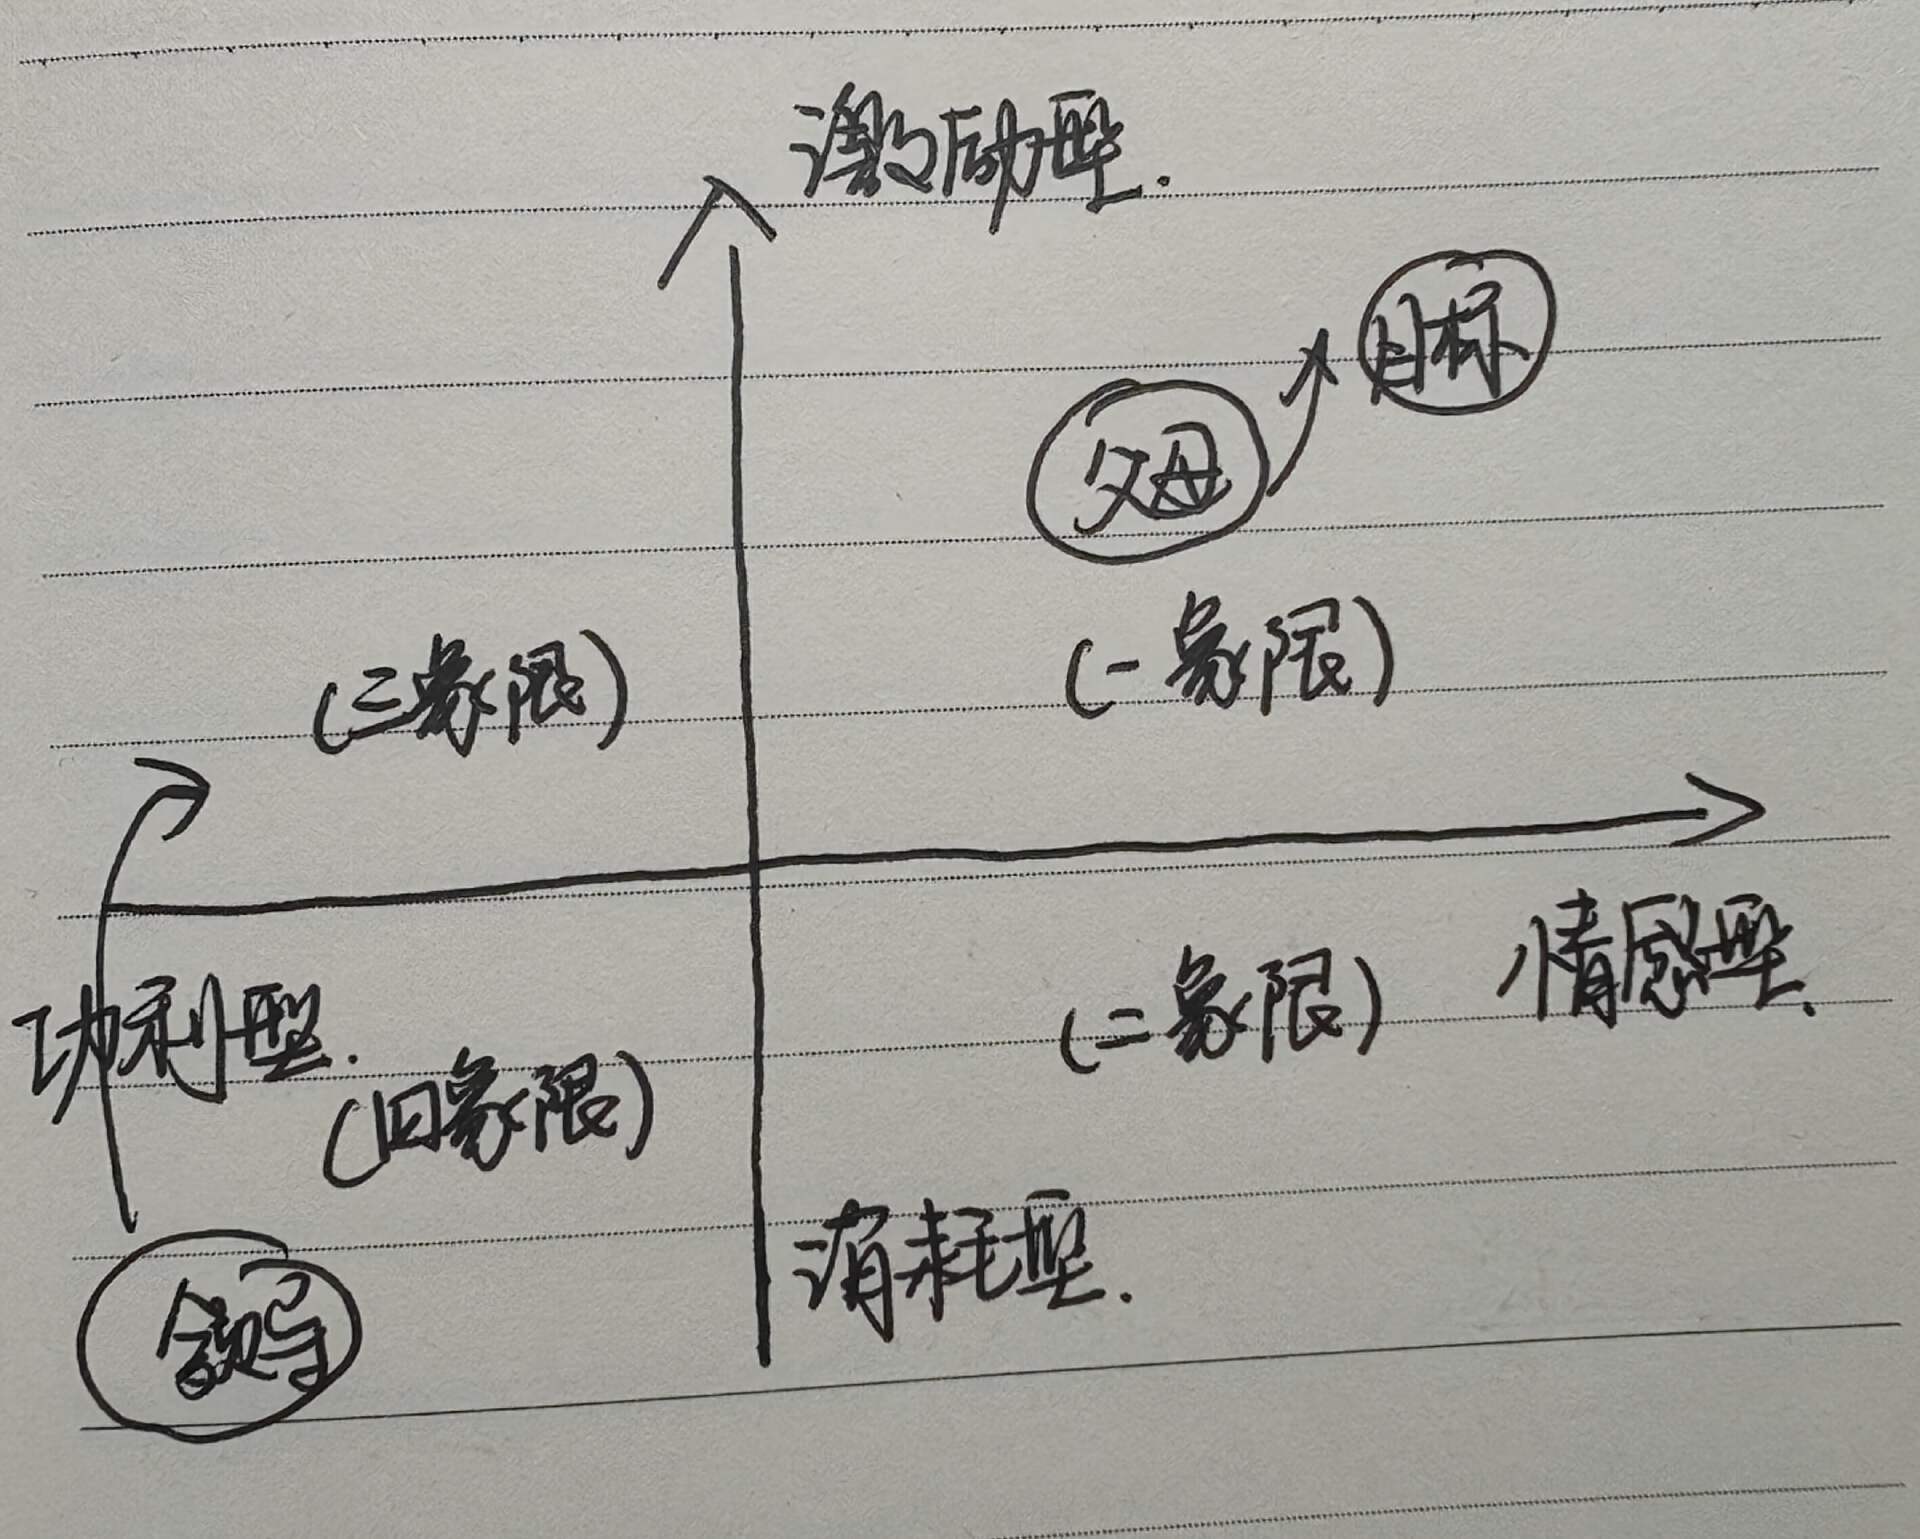 激励型.
目标
父母
(三象限)
(一象限)
情感型.
(二象限)
功利型.
(四象限)
消耗型.
领导